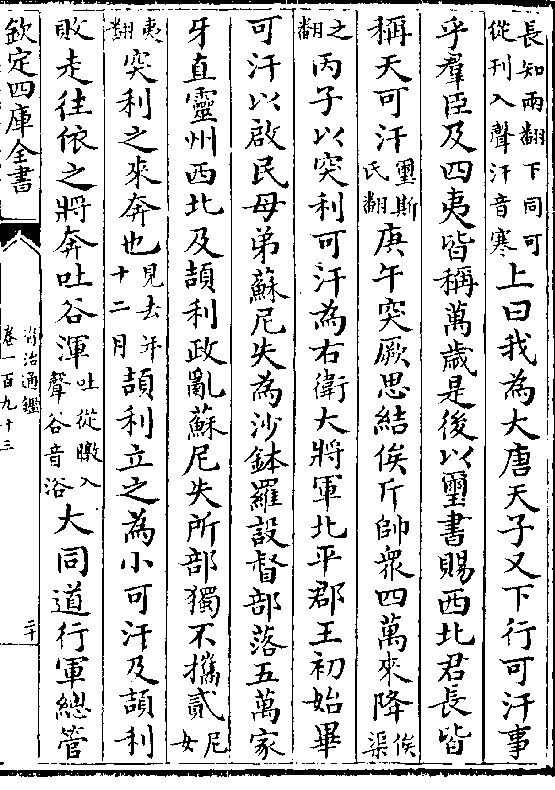 長知兩翻下同可
從刋入聲汗音寒
上曰我為大唐天子又下行可汗事
乎羣臣及四夷皆稱萬歲是後以璽書賜西北君長皆
稱天可汗
璽斯
氏翻
庚午突厥思結俟斤帥衆四萬來降
俟
渠
之
翻
丙子以突利可汗為右衛大將軍北平郡王初始畢
可汗以啟民母弟蘇尼失為沙鉢羅設督部落五萬家
牙直靈州西北及頡利政亂蘇尼失所部獨不攜貳
尼
女
夷
翻
突利之來奔也
見去年
十二月
頡利立之為小可汗及頡利
敗走往依之將奔吐谷渾
吐從暾入
聲谷音浴
大同道行軍總管
欽定四庫全書
資治通鑑
卷一百九十三
二十